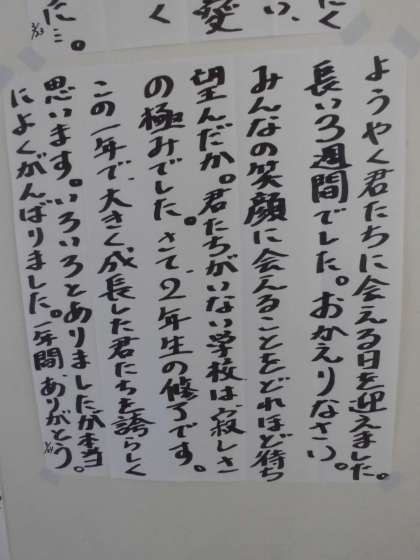 たに…。
3/23
く
変
い、
にく
ようやく君たちに会える日を迎えました。
長い3週間でした。おかえりなさい。
みんなの笑顔に会えることをどれほど待ち
望んだか。君たちがいない学校は、寂しさ
の極みでした。さて、2年生の修了です。
この一年で、大きく成長した君たちを誇らしく
思います。いろいろとありましたが本当
によくがんばりました。一年間、ありがとう。